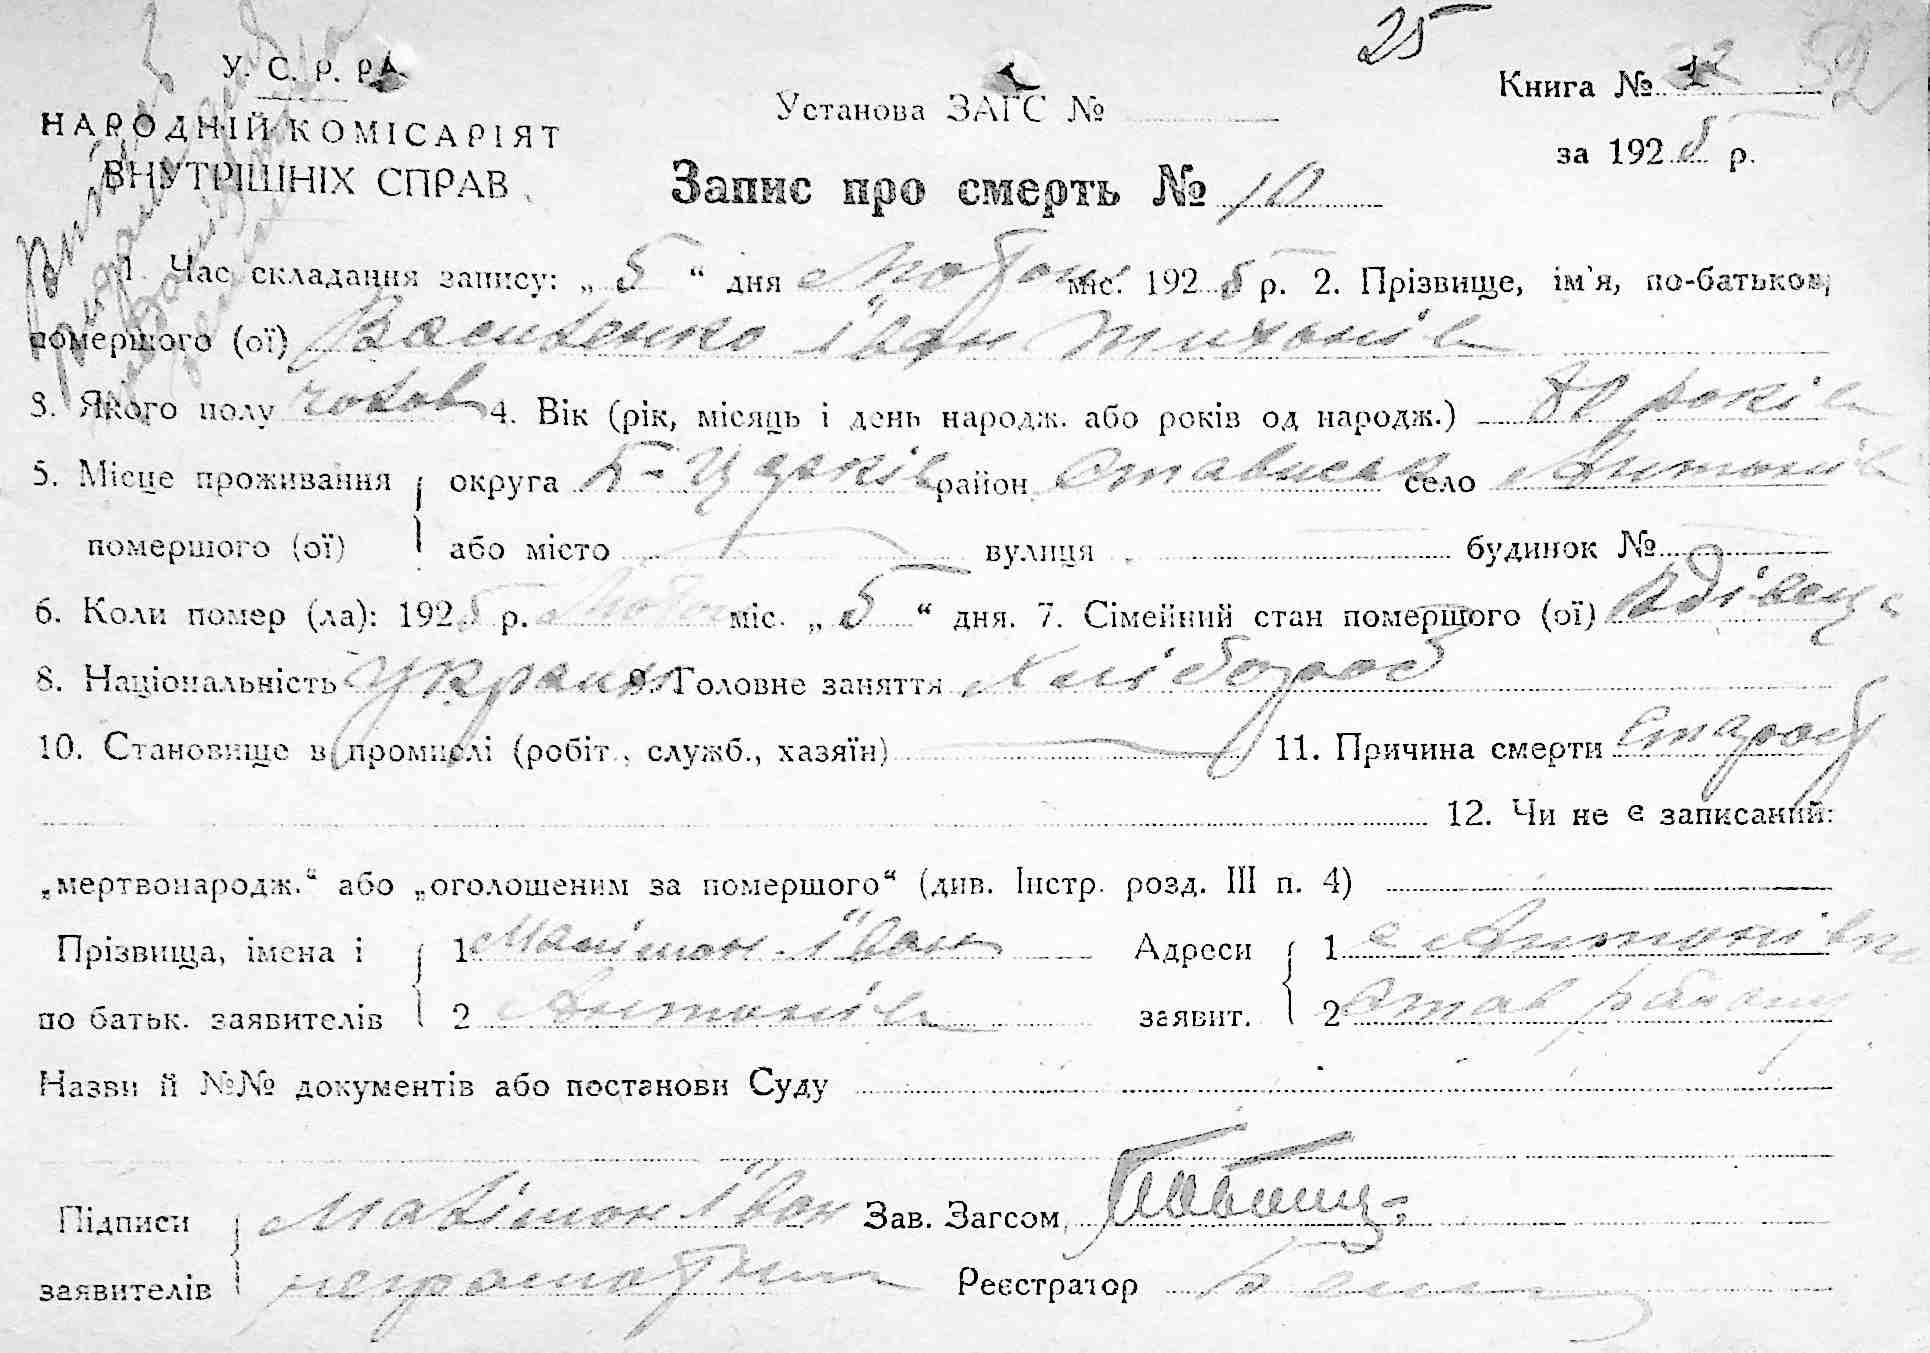 25
У. С. Р. Р.
Установа ЗАГС №
Книга № 12 52
НАРОДНІЙ КОМІСАРІЯТ
за 1925 р.
ВНУТРІШНІХ СПРАВ
Запис про смерть № 10
1. Час складання запису: „ 5 “ дня Лютого міс. 1925 р. 2. Прізвище, ім'я, по-батькові
помершого (ої) Василенко Іван Тихонів
3. Якого полу чолов 4. Вік (рік, місяць і день народж. або років од народж.) 80 років
5. Місце проживання округа Б-Церків район Стависьк село Антонів
помершого (ої) або місто вулиця будинок №
6. Коли помер (ла): 1925 р. Лютого міс. „ 5 “ дня. 7. Сімейний стан помершого (ої) вдівец
8. Національність Україн 9. Головне заняття Хлібороб
10. Становище в промислі (робіт., служб., хазяїн) 11. Причина смерти Старость
12. Чи не є записаний:
„мертвонародж.“ або „оголошеним за помершого“ (див. Інстр. розд. III п. 4)
Прізвища, імена і 1 Іван Адреси 1 с Антонівка
по батьк. заявителів 2 Антонів заявит. 2 Став району
Назви й №№ документів або постанови Суду
Підписи Іван Зав. Загсом
заявителів неграмотний Реєстратор